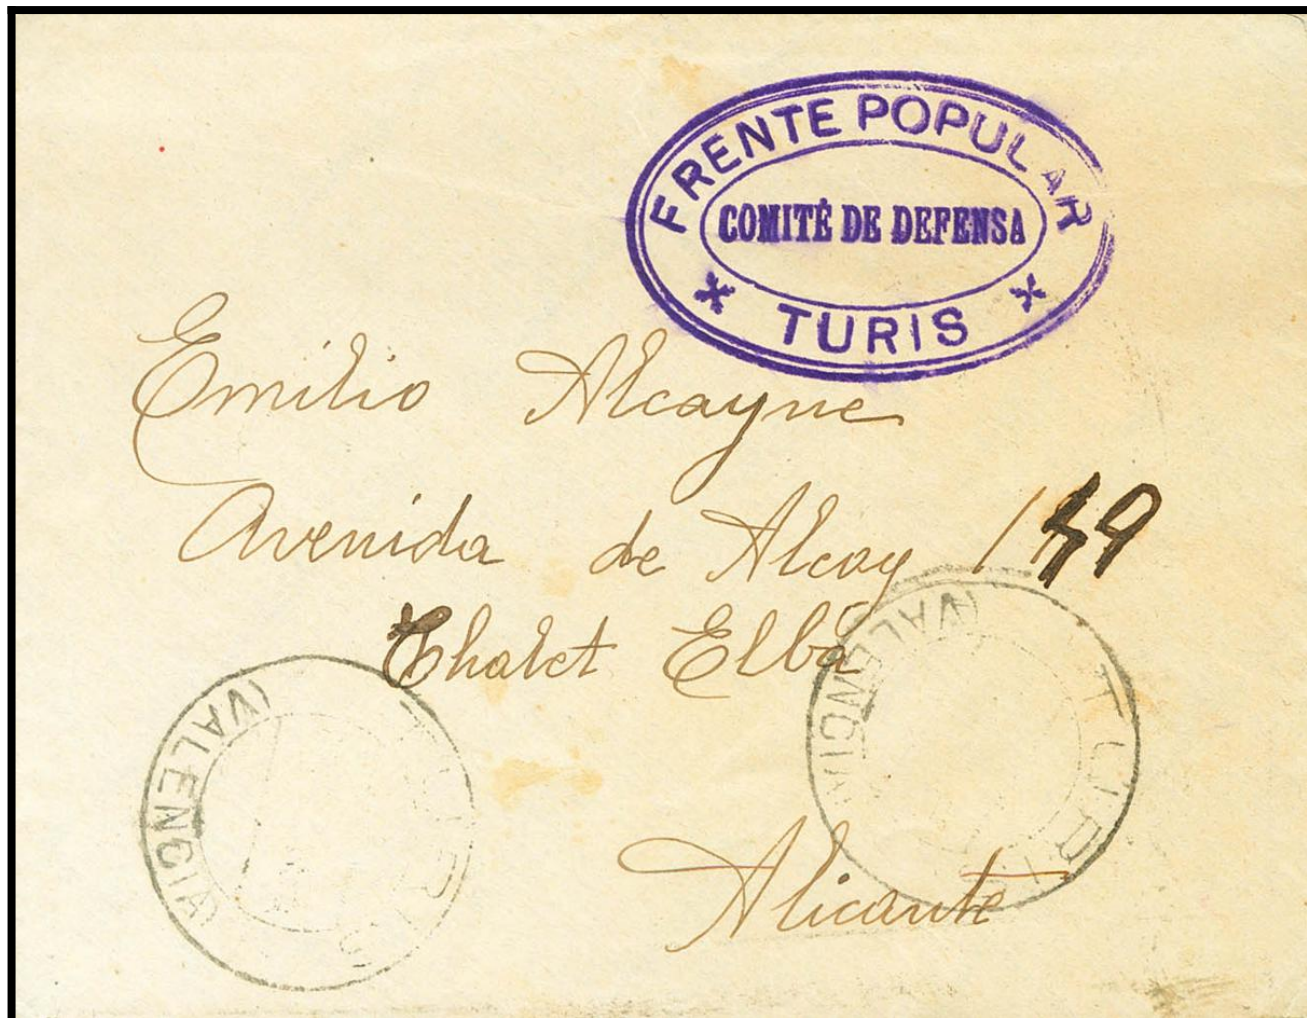 FRENTE POPULAR
COMITÉ DE DEFENSA
TURIS
Emilio Alcayne
Avenida de Alcoy
Chalet Elba
TURIS
(VALENCIA)
TURIS
(VALENCIA)
Alicante